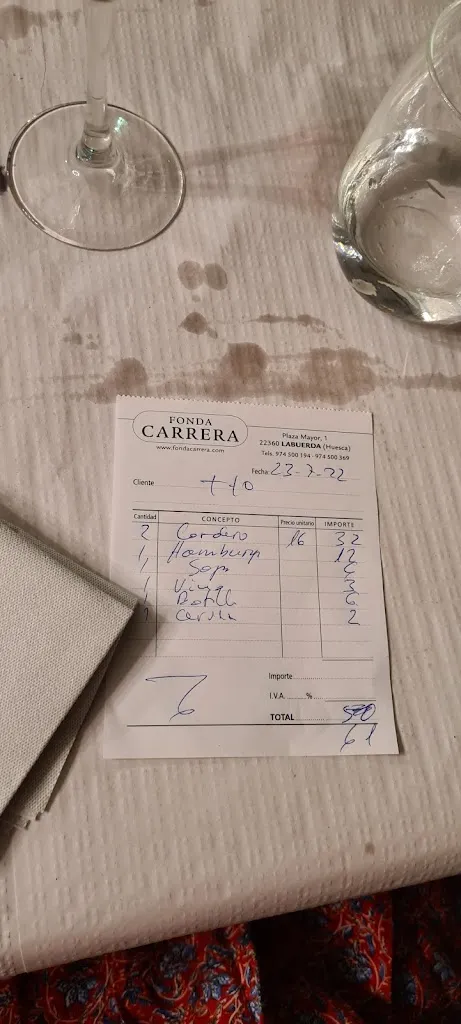 FONDA
CARRERA
www.fondacarrera.com
Plaza Mayor, 1
22360 LABUERDA (Huesca)
Tels. 974 500 194 - 974 500 369
Fecha: 23-7-22
Cliente
Cantidad CONCEPTO Precio unitario IMPORTE
2 Cordero 16 32
1 Hamburg 12
1 Sopa 6
1 3
1 Botll 6
2
Importe
I.V.A. %
TOTAL
61